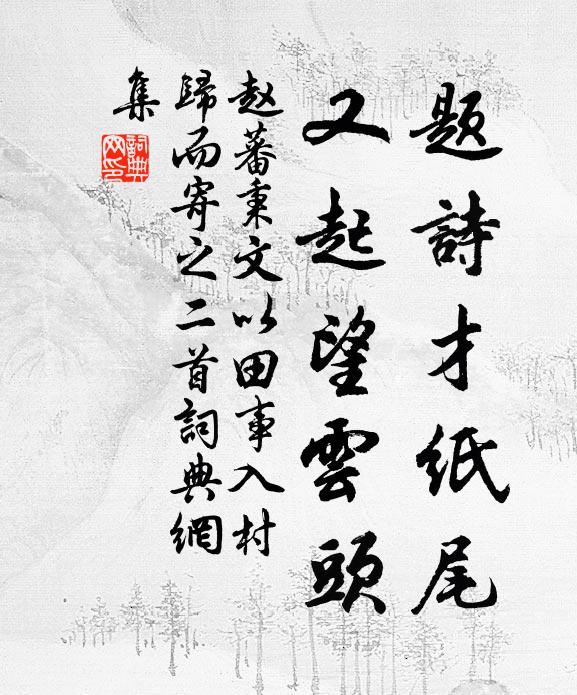 题詩才紙尾
又起望雲頭
赵蕃秉文以田事入村
歸而寄之二首詞典網
集
詞典网印